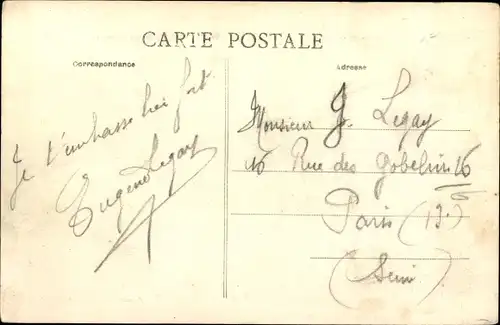 CARTE POSTALE
Correspondance
Adresse
Je t'embrasse bien fort
Eugène Legay
Monsieur J. Legay
16 Rue des Gobelins 16
Paris (13e)
(Seine)